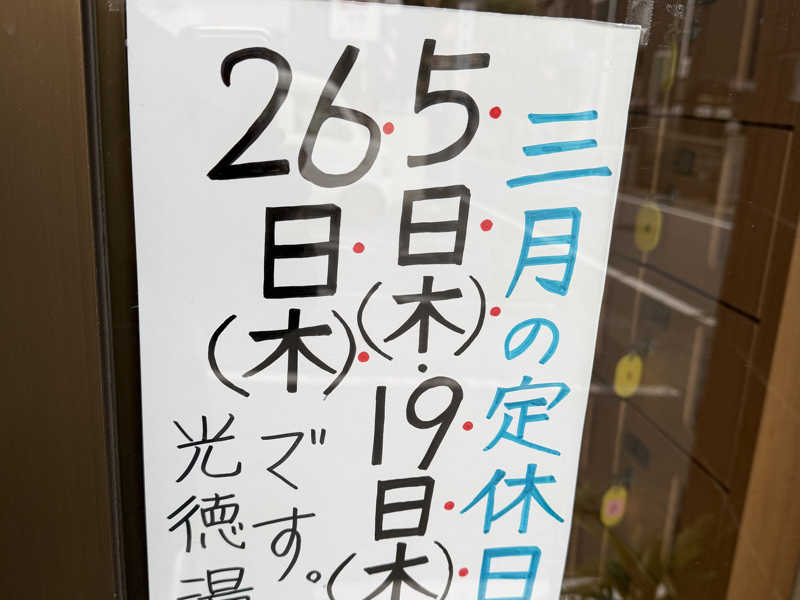 三月の定休日
5日(木)・19日(木)
26日(木)
です。
光徳湯